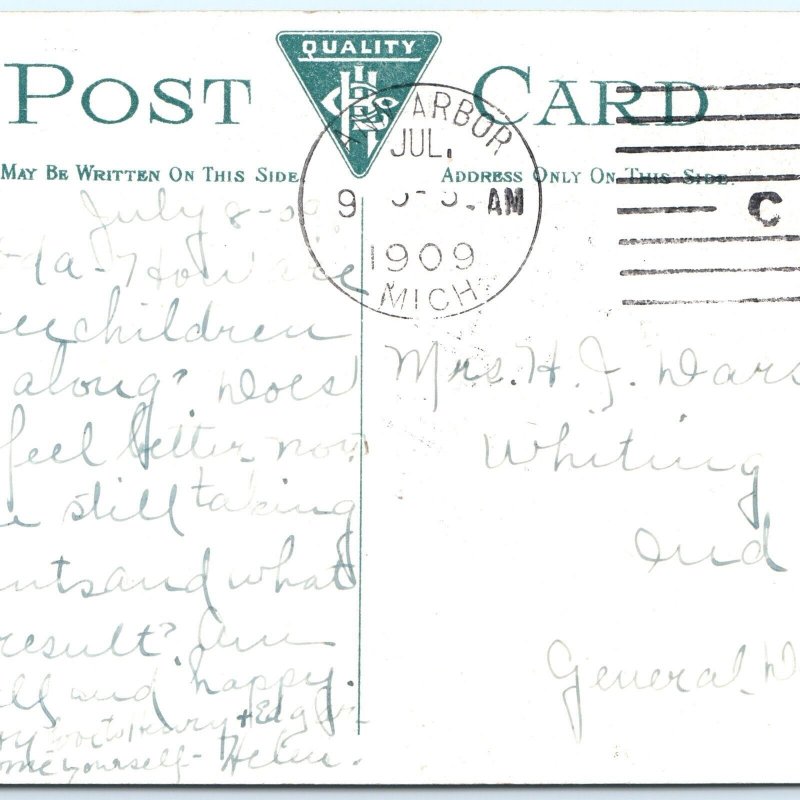 POST CARD
QUALITY
MAY BE WRITTEN ON THIS SIDE
ADDRESS ONLY ON THIS SIDE
ANN ARBOR
JUL.
9 AM
1909
MICH.
C
July 8-
How are
children
along? Does
feel better now
still taking
and what
result? Am
and happy.
Henry + Edgar
yourself - Helen.
Mrs. H. J.
Whiting
Ind
General